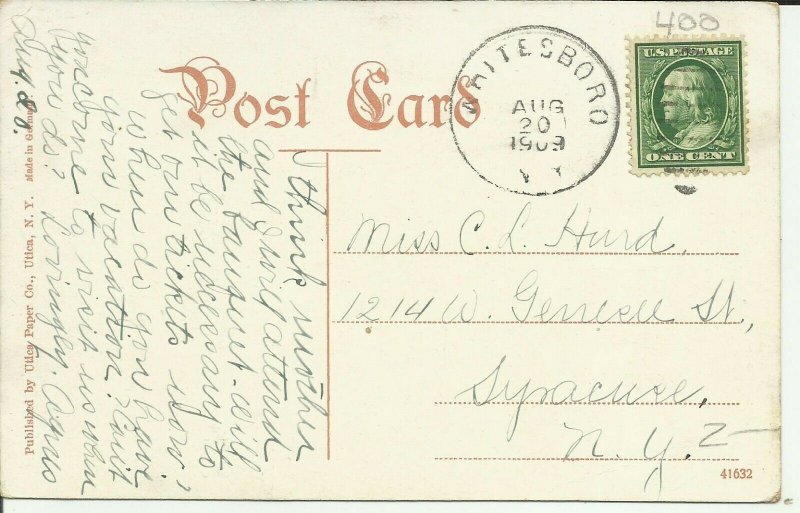 400
U.S. POSTAGE
ONE CENT
WHITESBORO
AUG
20
1909
Post Card
Miss C. L. Hurd,
1214 W. Genesee St,
Syracuse,
N. Y.
I think mother
and I will attend
the banquet. will
it be necessary to
get on tickets now?
when do you have
your vacation?
to visit us when
you do? Lovingly, Agnes
Aug.
Published by Utica Paper Co., Utica, N. Y. Made in Germany.
41632